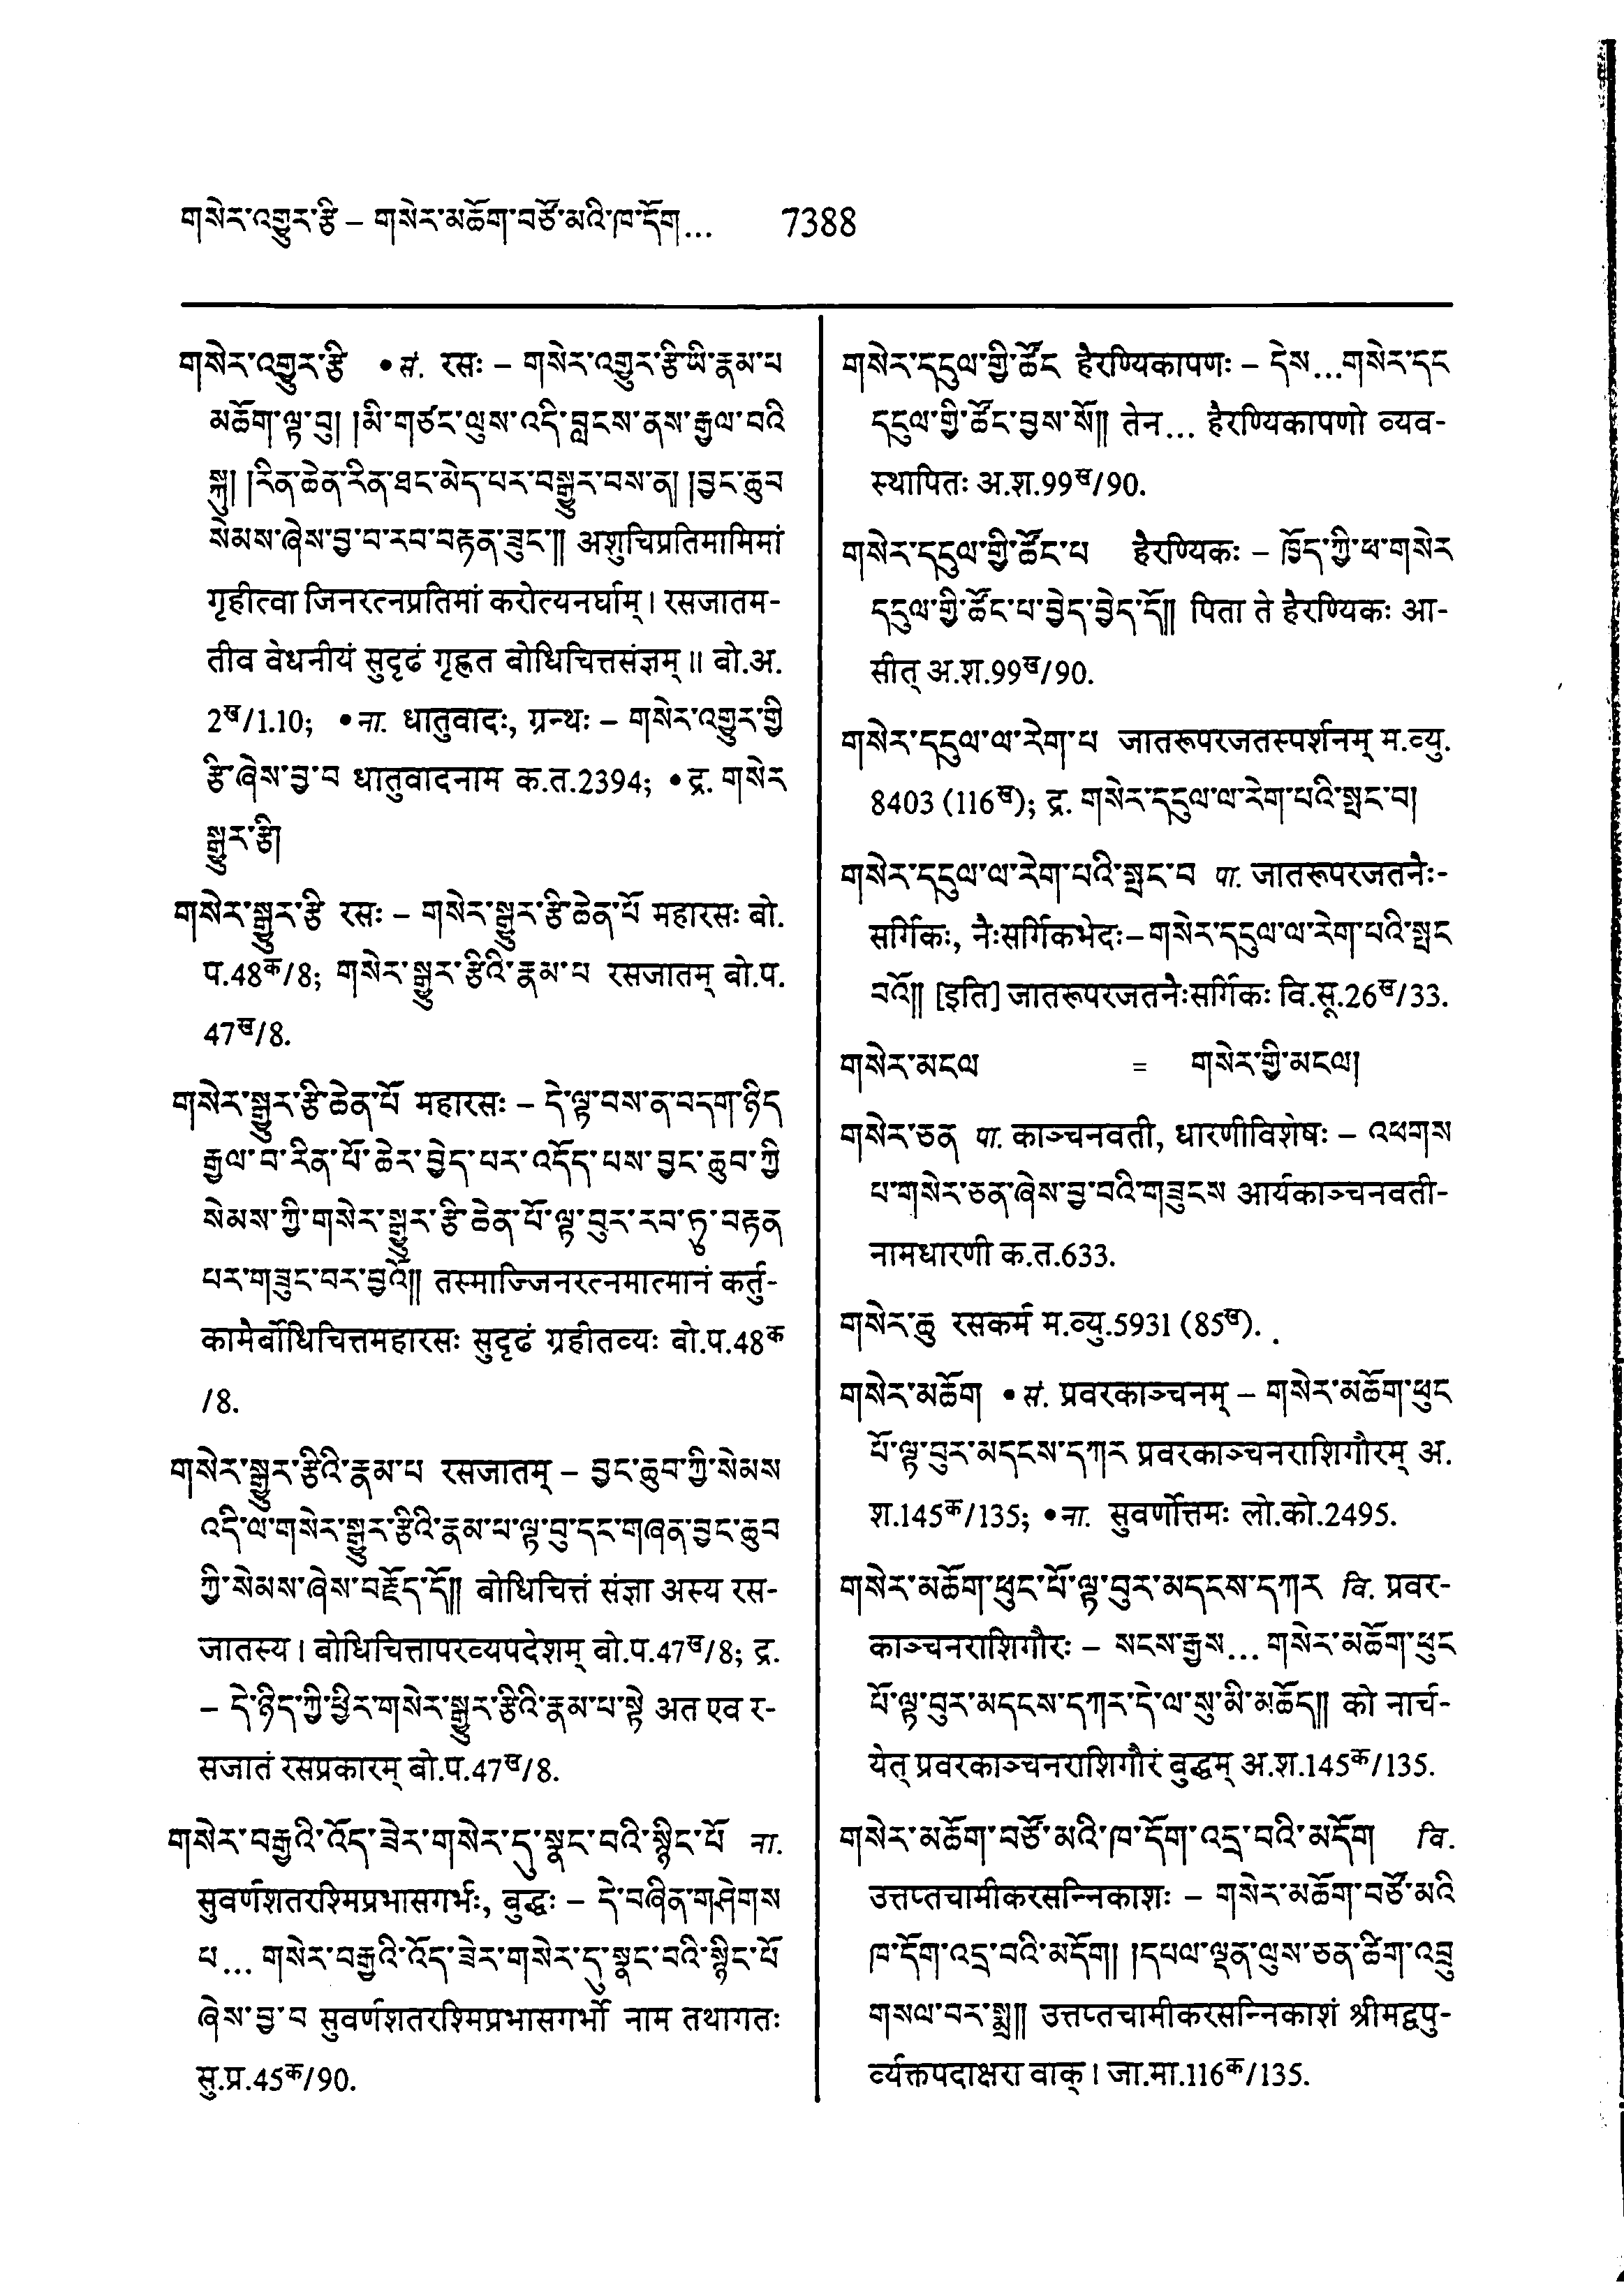 གསེར་འགྱུར་རྩི – གསེར་མཆོག་བཙོ་མའི་ཁ་དོག... 7388
གསེར་འགྱུར་རྩི • सं. रसः – གསེར་འགྱུར་རྩི་ཡི་རྣམ་པ
མཆོག་ལྟ་བུ། །མི་གཙང་ལུས་འདི་བླངས་ནས་རྒྱལ་བའི
སྐུ། །རིན་ཆེན་རིན་ཐང་མེད་པར་བསྒྱུར་བས་ན། །བྱང་ཆུབ
སེམས་ཞེས་བྱ་བ་རབ་བརྟན་ཟུང་༎ अशुचिप्रतिमामिमां
गृहीत्वा जिनरत्नप्रतिमां करोत्यनर्घाम् । रसजातम-
तीव वेधनीयं सुदृढं गृह्णत बोधिचित्तसंज्ञम् ॥ बो.अ.
2ख/1.10; • ना. धातुवादः, ग्रन्थः – གསེར་འགྱུར་གྱི
རྩི་ཞེས་བྱ་བ धातुवादनाम क.त.2394; • द्र. གསེར
སྒྱུར་རྩི།
གསེར་སྒྱུར་རྩི रसः – གསེར་སྒྱུར་རྩི་ཆེན་པོ महारसः बो.
प.48क/8; གསེར་སྒྱུར་རྩིའི་རྣམ་པ रसजातम् बो.प.
47ख/8.
གསེར་སྒྱུར་རྩི་ཆེན་པོ महारसः – དེ་ལྟ་བས་ན་བདག་ཉིད
རྒྱལ་བ་རིན་པོ་ཆེར་བྱེད་པར་འདོད་པས་བྱང་ཆུབ་ཀྱི
སེམས་ཀྱི་གསེར་སྒྱུར་རྩི་ཆེན་པོ་ལྟ་བུར་རབ་ཏུ་བརྟན
པར་གཟུང་བར་བྱའོ༎ तस्माज्जिनरत्नमात्मानं कर्तु-
कामैर्बोधिचित्तमहारसः सुदृढं ग्रहीतव्यः बो.प.48क
/8.
གསེར་སྒྱུར་རྩིའི་རྣམ་པ रसजातम् – བྱང་ཆུབ་ཀྱི་སེམས
འདི་ལ་གསེར་སྒྱུར་རྩིའི་རྣམ་པ་ལྟ་བུ་དང་གཞན་བྱང་ཆུབ
ཀྱི་སེམས་ཞེས་བརྗོད་དོ༎ बोधिचित्तं संज्ञा अस्य रस-
जातस्य । बोधिचित्तापरव्यपदेशम् बो.प.47ख/8; द्र.
– དེ་ཉིད་ཀྱི་ཕྱིར་གསེར་སྒྱུར་རྩིའི་རྣམ་པ་སྟེ अत एव र-
सजातं रसप्रकारम् बो.प.47ख/8.
གསེར་བརྒྱའི་འོད་ཟེར་གསེར་དུ་སྣང་བའི་སྙིང་པོ ना.
सुवर्णशतरश्मिप्रभासगर्भः, बुद्धः – དེ་བཞིན་གཤེགས
པ... གསེར་བརྒྱའི་འོད་ཟེར་གསེར་དུ་སྣང་བའི་སྙིང་པོ
ཞེས་བྱ་བ सुवर्णशतरश्मिप्रभासगर्भो नाम तथागतः
सु.प्र.45क/90.
གསེར་དངུལ་གྱི་ཚོང हैरण्यिकापणः – དེས...གསེར་དང
དངུལ་གྱི་ཚོང་བྱས་སོ༎ तेन... हैरण्यिकापणो व्यव-
स्थापितः अ.श.99ख/90.
གསེར་དངུལ་གྱི་ཚོང་པ हैरण्यिकः – ཁྱོད་ཀྱི་ཕ་གསེར
དངུལ་གྱི་ཚོང་པ་བྱེད་བྱེད་དོ༎ पिता ते हैरण्यिकः आ-
सीत् अ.श.99ख/90.
གསེར་དངུལ་ལ་རེག་པ जातरूपरजतस्पर्शनम् म.व्यु.
8403 (116ख); द्र. གསེར་དངུལ་ལ་རེག་པའི་སྤང་བ།
གསེར་དངུལ་ལ་རེག་པའི་སྤང་བ पा. जातरूपरजतनैः-
सर्गिकः, नैःसर्गिकभेदः– གསེར་དངུལ་ལ་རེག་པའི་སྤང
བའོ༎ [इति] जातरूपरजतनैःसर्गिकः वि.सू.26ख/33.
གསེར་མངལ = གསེར་གྱི་མངལ།
གསེར་ཅན पा. काञ्चनवती, धारणीविशेषः – འཕགས
པ་གསེར་ཅན་ཞེས་བྱ་བའི་གཟུངས आर्यकाञ्चनवती-
नामधारणी क.त.633.
གསེར་ཆུ रसकर्म म.व्यु.5931 (85ख).
གསེར་མཆོག • सं. प्रवरकाञ्चनम् – གསེར་མཆོག་ཕུང
པོ་ལྟ་བུར་མདངས་དཀར प्रवरकाञ्चनराशिगौरम् अ.
श.145क/135; • ना. सुवर्णोत्तमः लो.को.2495.
གསེར་མཆོག་ཕུང་པོ་ལྟ་བུར་མདངས་དཀར वि. प्रवर-
काञ्चनराशिगौरः – སངས་རྒྱས... གསེར་མཆོག་ཕུང
པོ་ལྟ་བུར་མདངས་དཀར་དེ་ལ་སུ་མི་མཆོད༎ को नार्च-
येत् प्रवरकाञ्चनराशिगौरं बुद्धम् अ.श.145क/135.
གསེར་མཆོག་བཙོ་མའི་ཁ་དོག་འདྲ་བའི་མདོག वि.
उत्तप्तचामीकरसन्निकाशः – གསེར་མཆོག་བཙོ་མའི
ཁ་དོག་འདྲ་བའི་མདོག། །དཔལ་ལྡན་ལུས་ཅན་ཚིག་འབྲུ
གསལ་བར་སྨྲ༎ उत्तप्तचामीकरसन्निकाशं श्रीमद्वपु-
र्व्यक्तपदाक्षरा वाक् । जा.मा.116क/135.